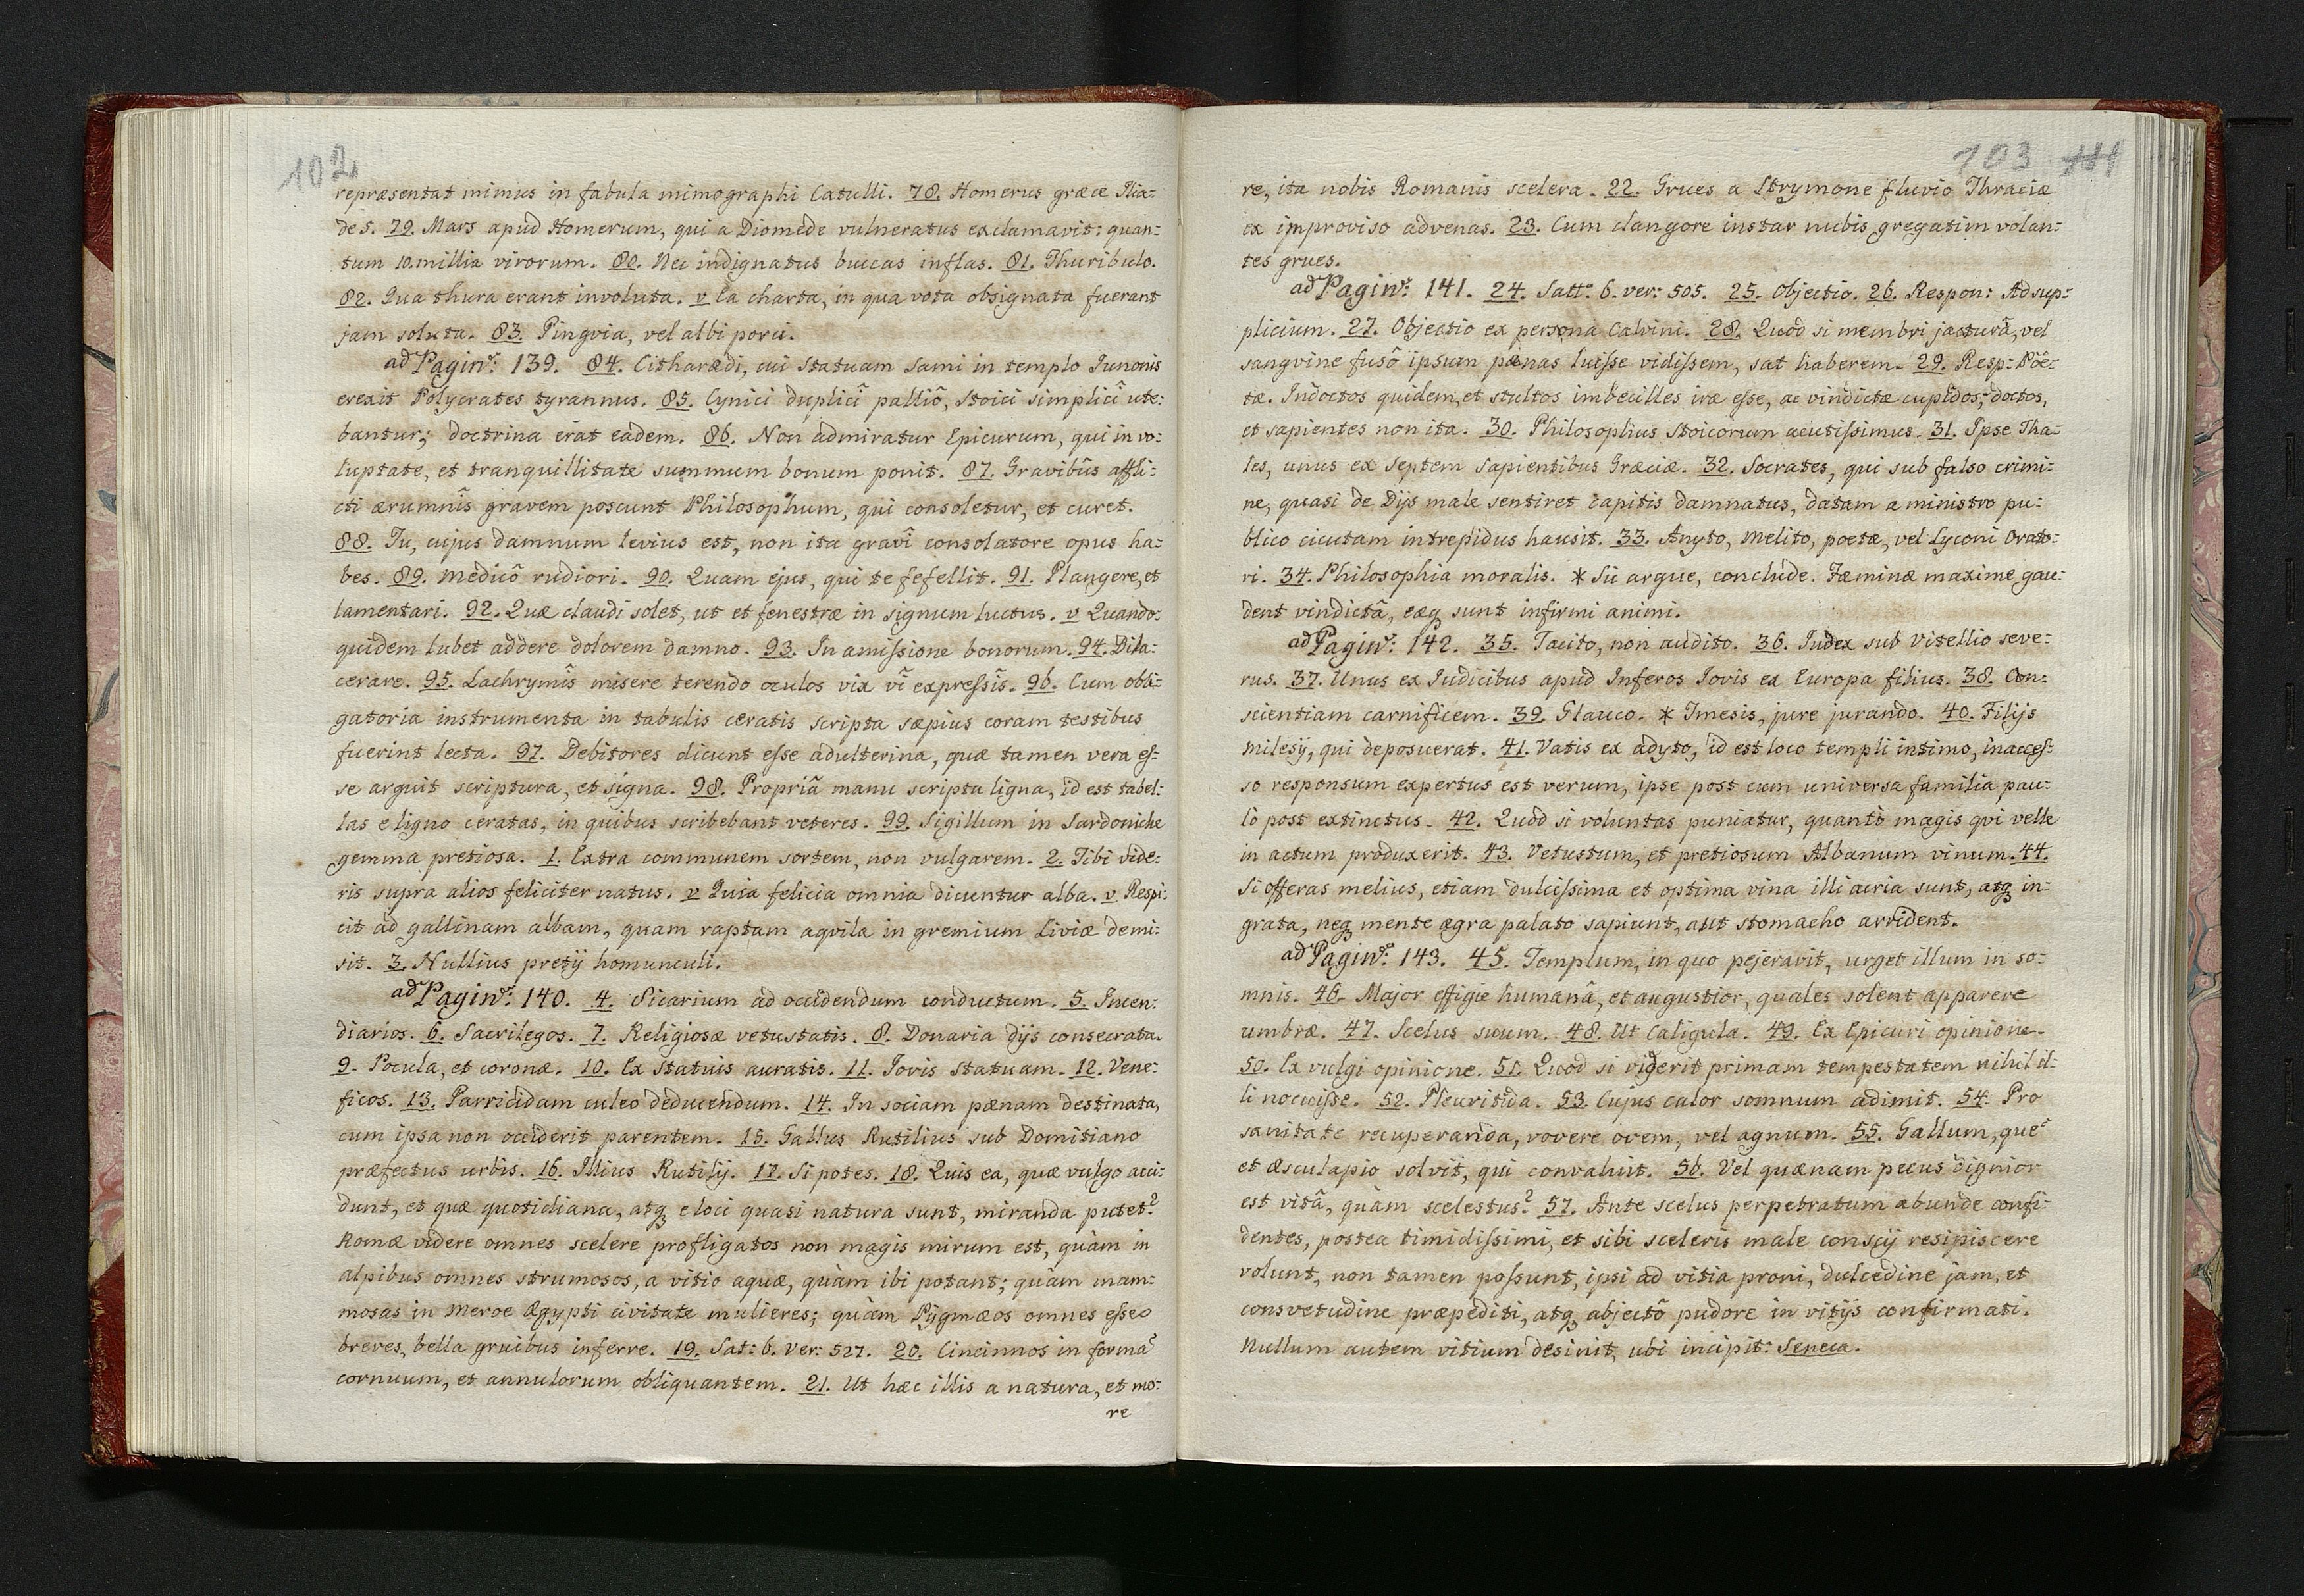 102
repræsentat mimus in fabula mimographi Catulli. 78. Homerus græce Ilia:
de 5. 79. Mars apud Homerum, qui a Diomede vulneratus exclamavit: quan:
tum 10. millia virorum. 80. Nec indignatus buccas inflas. 81. Thuribulo.
82. Qua thura erant involuta. v Ea charta, in qua vota obsignata fuerant
jam soluta. 83. Pingvia, vel albi porci.
ad Pagin: 139. 84. Citharædi, cui statuam Sami in templo Junonis
erexit Polycrates tyrannus. 85. Cynici duplicî palliô, Stoici simplicî ute:
bantur; doctrina erat eadem. 86. Non admiratur Epicurum, qui in vo:
luptate, et tranquillitate summum bonum ponit. 87. Gravibûs affli:
cti ærumnîs gravem poscunt Philosophum, qui consoletur, et curet.
88. Tu, cujus damnum levius est, non ita gravî consolatore opus ha:
bes. 89. Medicô rudiori. 90. Quam ejus, qui te fefellit. 91. Plangere, et
lamentari. 92. Quæ claudi solet, ut et fenestræ in signum luctus. v Quando:
quidem lubet addere dolorem damno. 93. In amissione bonorum. 94. Dila:
cerare. 95. Lachrymîs misere terendo oculos vix vî expressîs. 96. Cum obli:
gatoria instrumenta in tabulis ceratis scripta sæpius coram testibus
fuerint lecta. 97. Debitores dicunt esse adulterina, quæ tamen vera es:
se arguit scriptura, et signa. 98. Propriâ manu scripta ligna, id est tabel:
las e ligno ceratas, in quibus scribebant veteres. 99. Sigillum in Sardoniche
gemma pretiosa. 1. Extra communem sortem, non vulgarem. 2. Tibi vide:
ris supra alios feliciter natus. v Quia felicia omnia dicuntur alba. v Respi:
cit ad gallinam albam, quam raptam aqvila in gremium Liviæ demi:
sit. 3. Nullius pretij homunculi.
ad Pagin: 140. 4. Sicarium ad occidendum conductum. 5. Incen:
diarios. 6. Sacrilegos. 7. Religiosæ vetustatis. 8. Donaria dijs consecrata.
9. Pocula, et coronæ. 10. Ex statuis auratis. 11. Jovis statuam. 12. Vene:
ficos. 13. Parricidam culeo deducendum. 14. In sociam pænam destinata,
cum ipsa non occiderit parentem. 15. Gallus Rutilius sub Domitiano
præfectus urbis. 16. Illius Rutilij. 17. Si potes. 18. Quis ea, quæ vulgo acci:
dunt, et quæ quotidiana, atq e loci quasi natura sunt, miranda putet?
Romæ videre omnes scelere profligatos non magis mirum est, quàm in
alpibus omnes strumosos, a vitio aquæ, quàm ibi potant; quàm mam:
mosas in Meroe Ægypti civitate mulieres; quàm Pygmæos omnes esse
breves, bella gruibus inferre. 19. Sat: 6. ver: 527. 20. Cincinnos in forma
cornuum, et annulorum obliquantem. 21. Ut hæc illis a natura, et mo:
re
103 111
re, ita nobis Romanis scelera. 22. Grues a Strymone fluvio Thraciæ
ex improviso advenas. 23. Cum clangore instar nubis gregatim volan:
tes grues.
ad Pagin: 141. 24. Satt: 6. ver: 505. 25. Objectio. 26. Respon: Ad sup:
plicium. 27. Objectio ex persona Calvini. 28. Quod si membri jacturâ, vel
sangvine fusô ipsum pænas luisse vidissem, sat haberem. 29. Resp: Pôe:
tæ. Indoctos quidem, et stultos imbecilles iræ esse, ac vindictæ cupidos; doctos,
et sapientes non ita. 30. Philosophus Stoicorum acutissimus. 31. Ipse Tha:
les, unus ex septem sapientibus Græciæ. 32. Socrates, qui sub falso crimi:
ne, quasi de Dijs male sentiret capitis damnatus, datam a ministro pu:
blico cicutam intrepidus hausit. 33. Anyto, Melito, poetæ, vel Lyconi Orato:
ri. 34. Philosophia moralis. * Sic argue, conclude. Fæminæ maxime gau:
dent vindictâ, eæq sunt infirmi animi.
ad Pagin: 142. 35. Tacito, non audito. 36. Iudex sub Vitellio seve:
rus. 37. Unus ex Iudicibus apud Inferos Iovis ex Europa filius. 38. Con:
scientiam carnificem. 39. Glauco. * Tmesis, jure jurando. 40. Filijs
Milesij, qui deposuerat. 41. Vatis ex adyto, id est loco templi intimo, inacces:
so responsum expertus est verum, ipse post cum universa familia pau:
lò post extinctus. 42. Quod si voluntas puniatur, quantò magis qvi velle
in actum produxerit. 43. Vetustum, et pretiosum Albanum vinum. 44.
Si offeras melius, etiam dulcissima et optima vina illi acria sunt, atq in:
grata, neq mente ægra palato sapiunt, aut stomacho arrident.
ad Pagin: 143. 45. Templum, in quo pejeravit, urget illum in so:
mnis. 46. Major effigie humanâ, et augustior, quales solent apparere
umbræ. 47. Scelus suum. 48. Ut Caligula. 49. Ex Epicuri opinione.
50. Ex vulgi opinione. 51. Quod si viderit primam tempestatem nihil il:
li nocuisse. 52. Pleuritida. 53. Cujus calor somnum adimit. 54. Pro
sanitate recuperanda, vovere ovem, vel agnum. 55. Gallum, que
et Æsculapio solvit, qui convaluit. 56. Vel quænam pecus dignior
est vitâ, quàm scelestus? 57. Ante scelus perpetratum abunde confi:
dentes, postea timidissimi, et sibi sceleris male conscij resipiscere
volunt, non tamen possunt, ipsi ad vitia proni, dulcedine jam, et
consvetudine præpediti, atq abjectô pudore in vitijs confirmati.
Nullum autem vitium desinit, ubi incipit: Seneca.